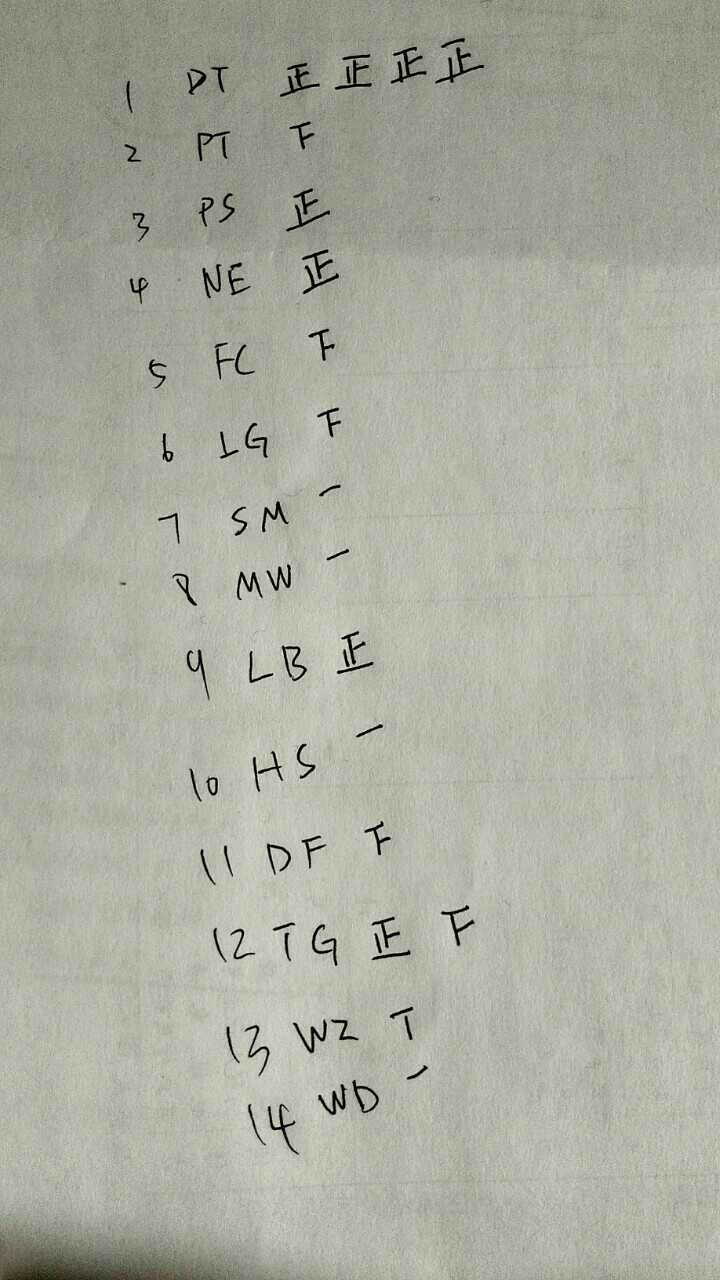 1 DT 正 正 正 正
2 PT 下
3 PS 正
4 NE 正
5 FC 下
6 IG 下
7 SM 一
8 MW 一
9 LB 正
10 HS 一
11 DF 下
12 TG 正 下
13 WZ T
14 WD 一